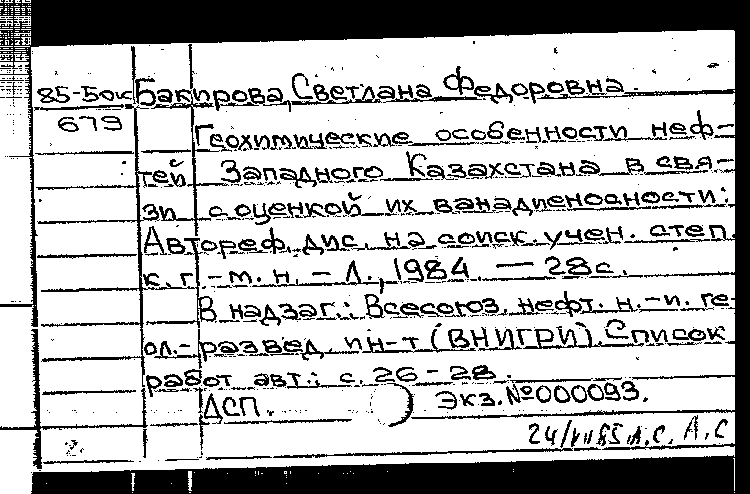 85-5ок Бакирова, Светлана Федоровна.
679
Геохимические особенности неф-
тей Западного Казахстана в свя-
зи с оценкой их ванадиеносности:
Автореф. дис. на соиск. учен. степ.
к. г.-м. н. - Л., 1984. - 28 с.
В надзаг.: Всесоюз. нефт. н.-и. ге-
ол.-развед. ин-т (ВНИГРИ). Список
работ авт.: с. 26-28.
ДСП. Экз. №000093.
2. 24/VII 85 А.С. А.С